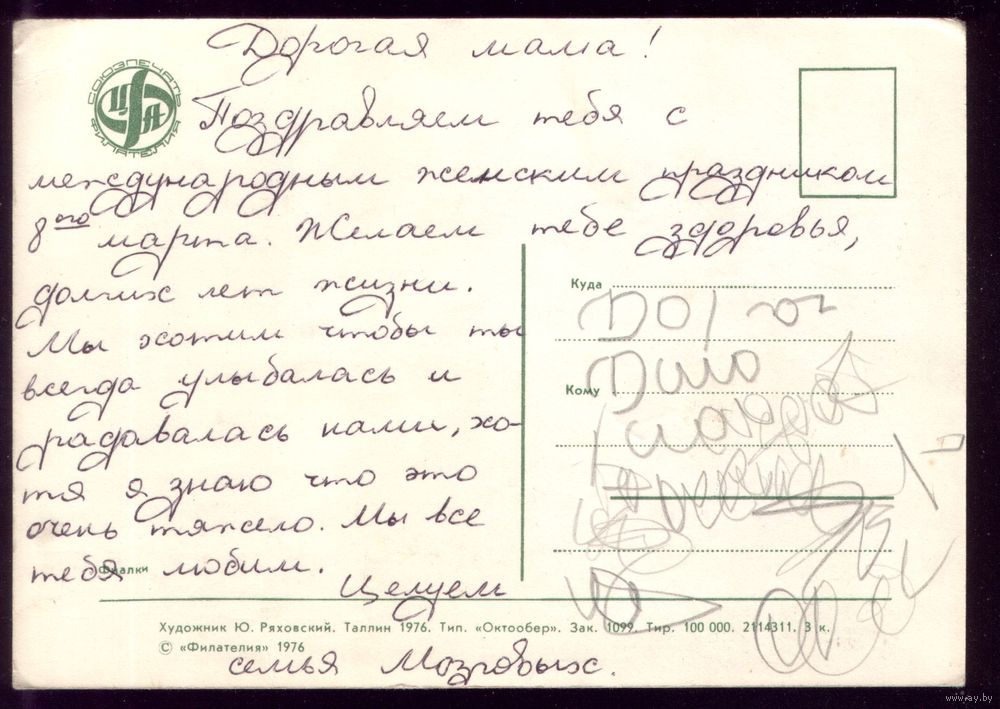 Дорогая мама!
СОЮЗПЕЧАТЬ
ЦФА
ФИЛАТЕЛИЯ
Поздравляем тебя с
международным женским праздником
8ого марта. Желаем тебе здоровья,
долгих лет жизни.
Мы хотим чтобы ты
всегда улыбалась и
радавалась нами, хо-
тя я знаю что это
очень тяжело. Мы все
тебя любим.
Целуем
семья Мозговых.
Куда
Кому
Фиалки
Художник Ю. Ряховский. Таллин 1976. Тип. «Октообер». Зак. 1099 Тир. 100 000. 2114311. 3 к.
© «Филателия» 1976
www.ay.by